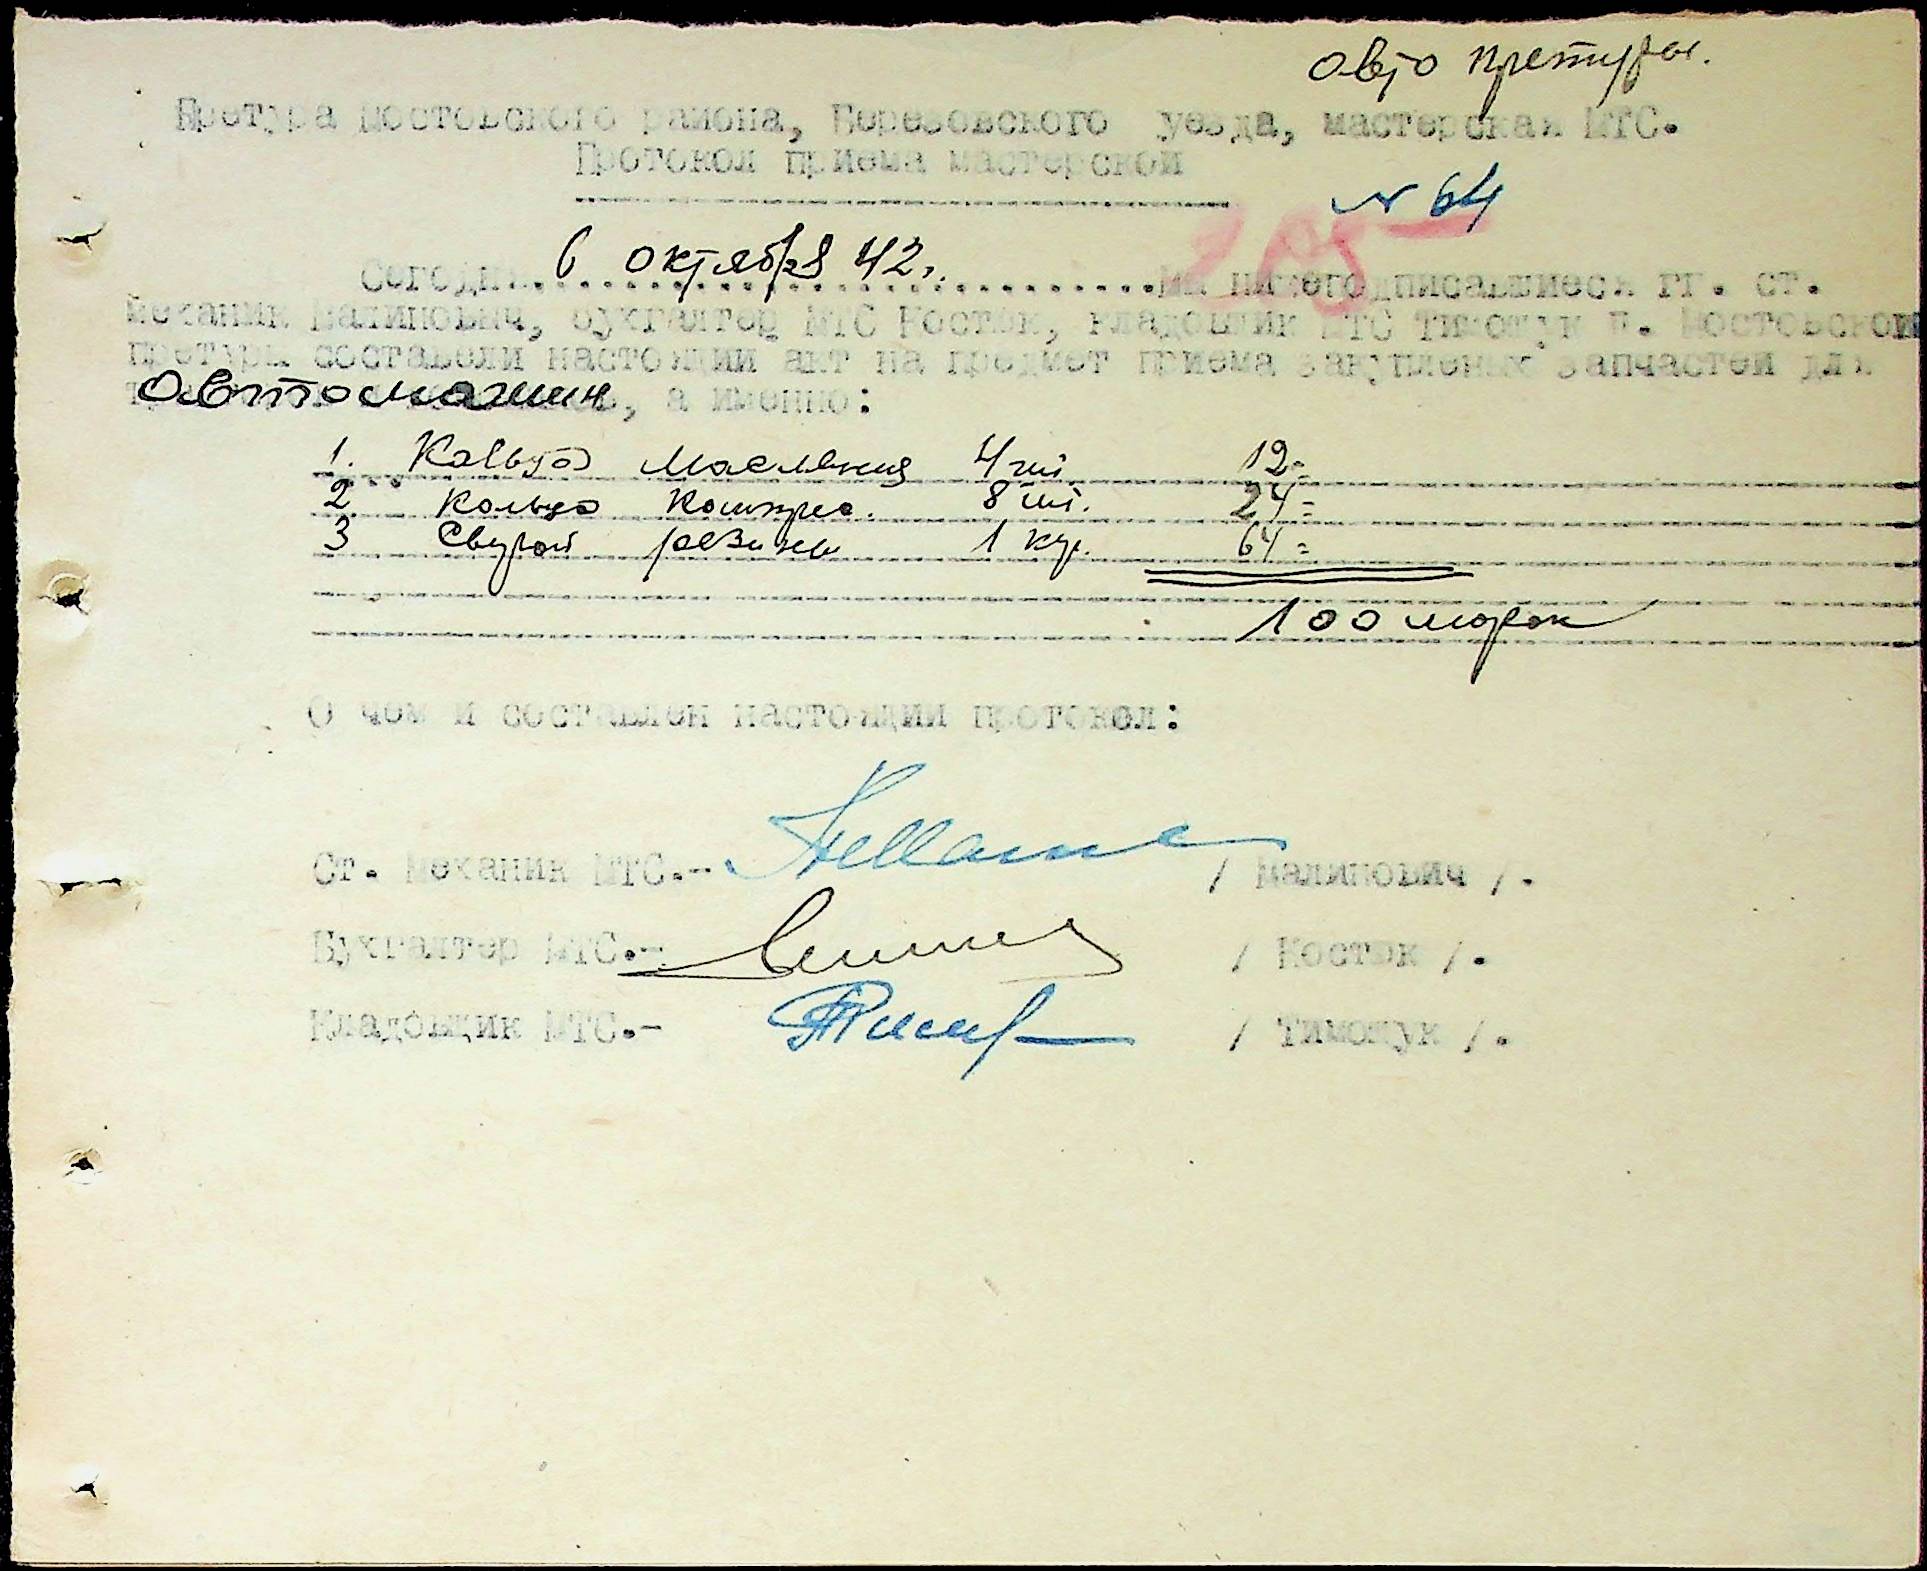 Авто претуры.
Претура Мостовского района, Березовского уезда, мастерская МТС.
Протокол приема мастерской
№ 64
205
Сегодня 6 октября 42 г. мы нижеподписавшиеся гг. ст.
механик Малинович, бухгалтер МТС Костюк, кладовщик МТС Тимощук п. Мостовской
претуры составели настоящий акт на предмет приема закупленых запчастей для
Автомашин, а именно:
1. Кольцо масляния 4 шт 12-
2. Кольцо компрес. 8 шт. 24=
3 Сырой резины 1 кг. 64=
100 марок
О чем и составлен настоящий протокол:
Ст. Механик МТС.- / Малинович /.
Бухгалтер МТС.- / Костюк /.
Кладовщик МТС.- / Тимощук /.